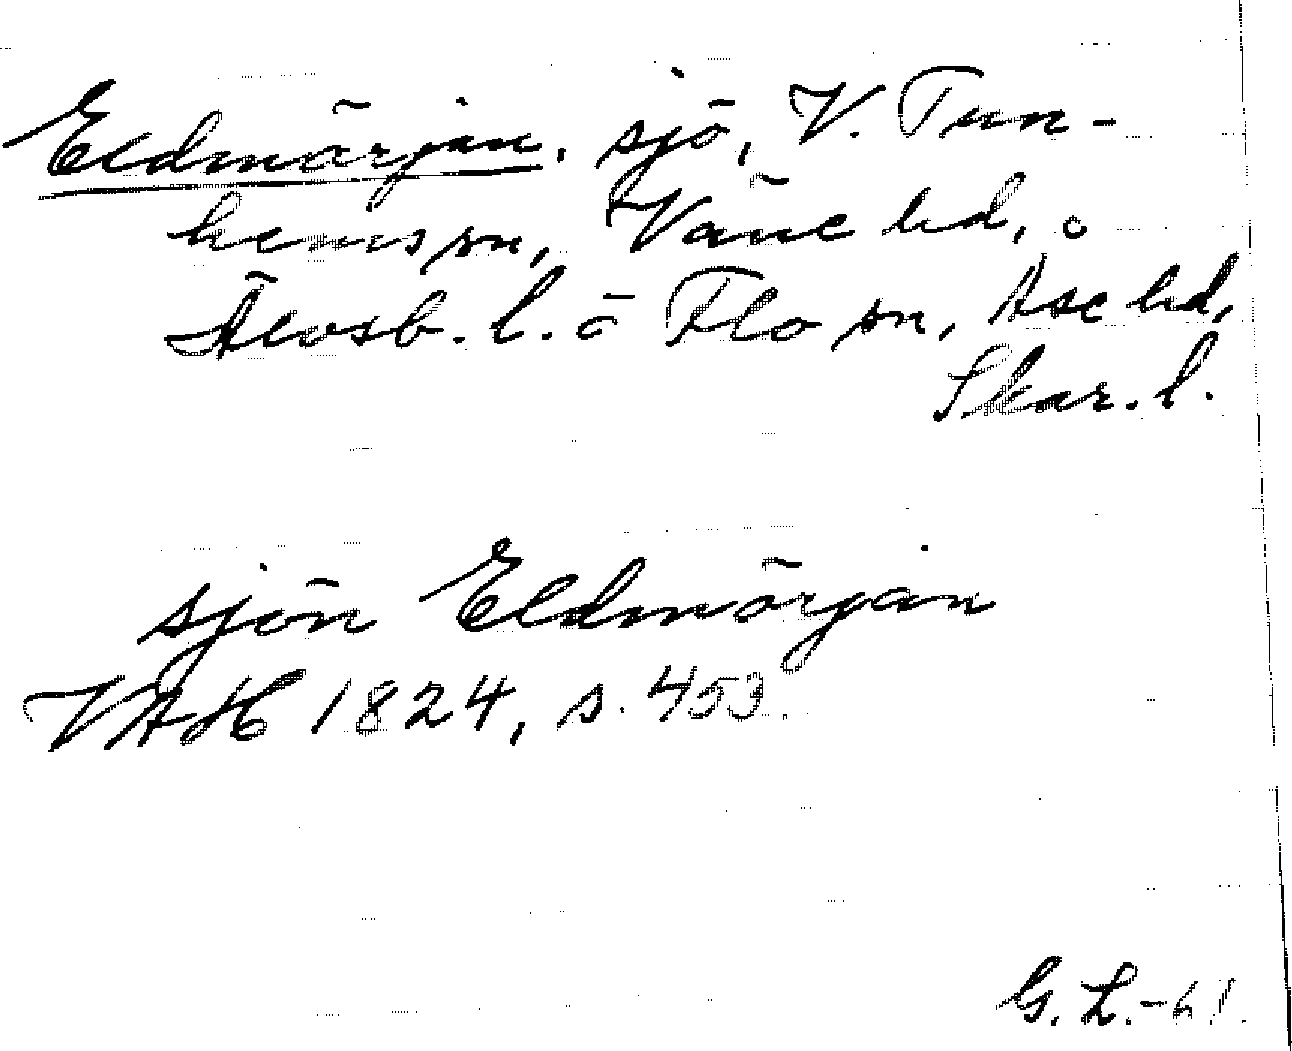 Eldmörjan, sjö, V. Tun-
hems sn, Väne hd,
Älvsb. l. o Flo sn, Åse hd,
Skar. l.
sjön Eldmörjan
VAH 1824, s. 453.
G. L. -61.